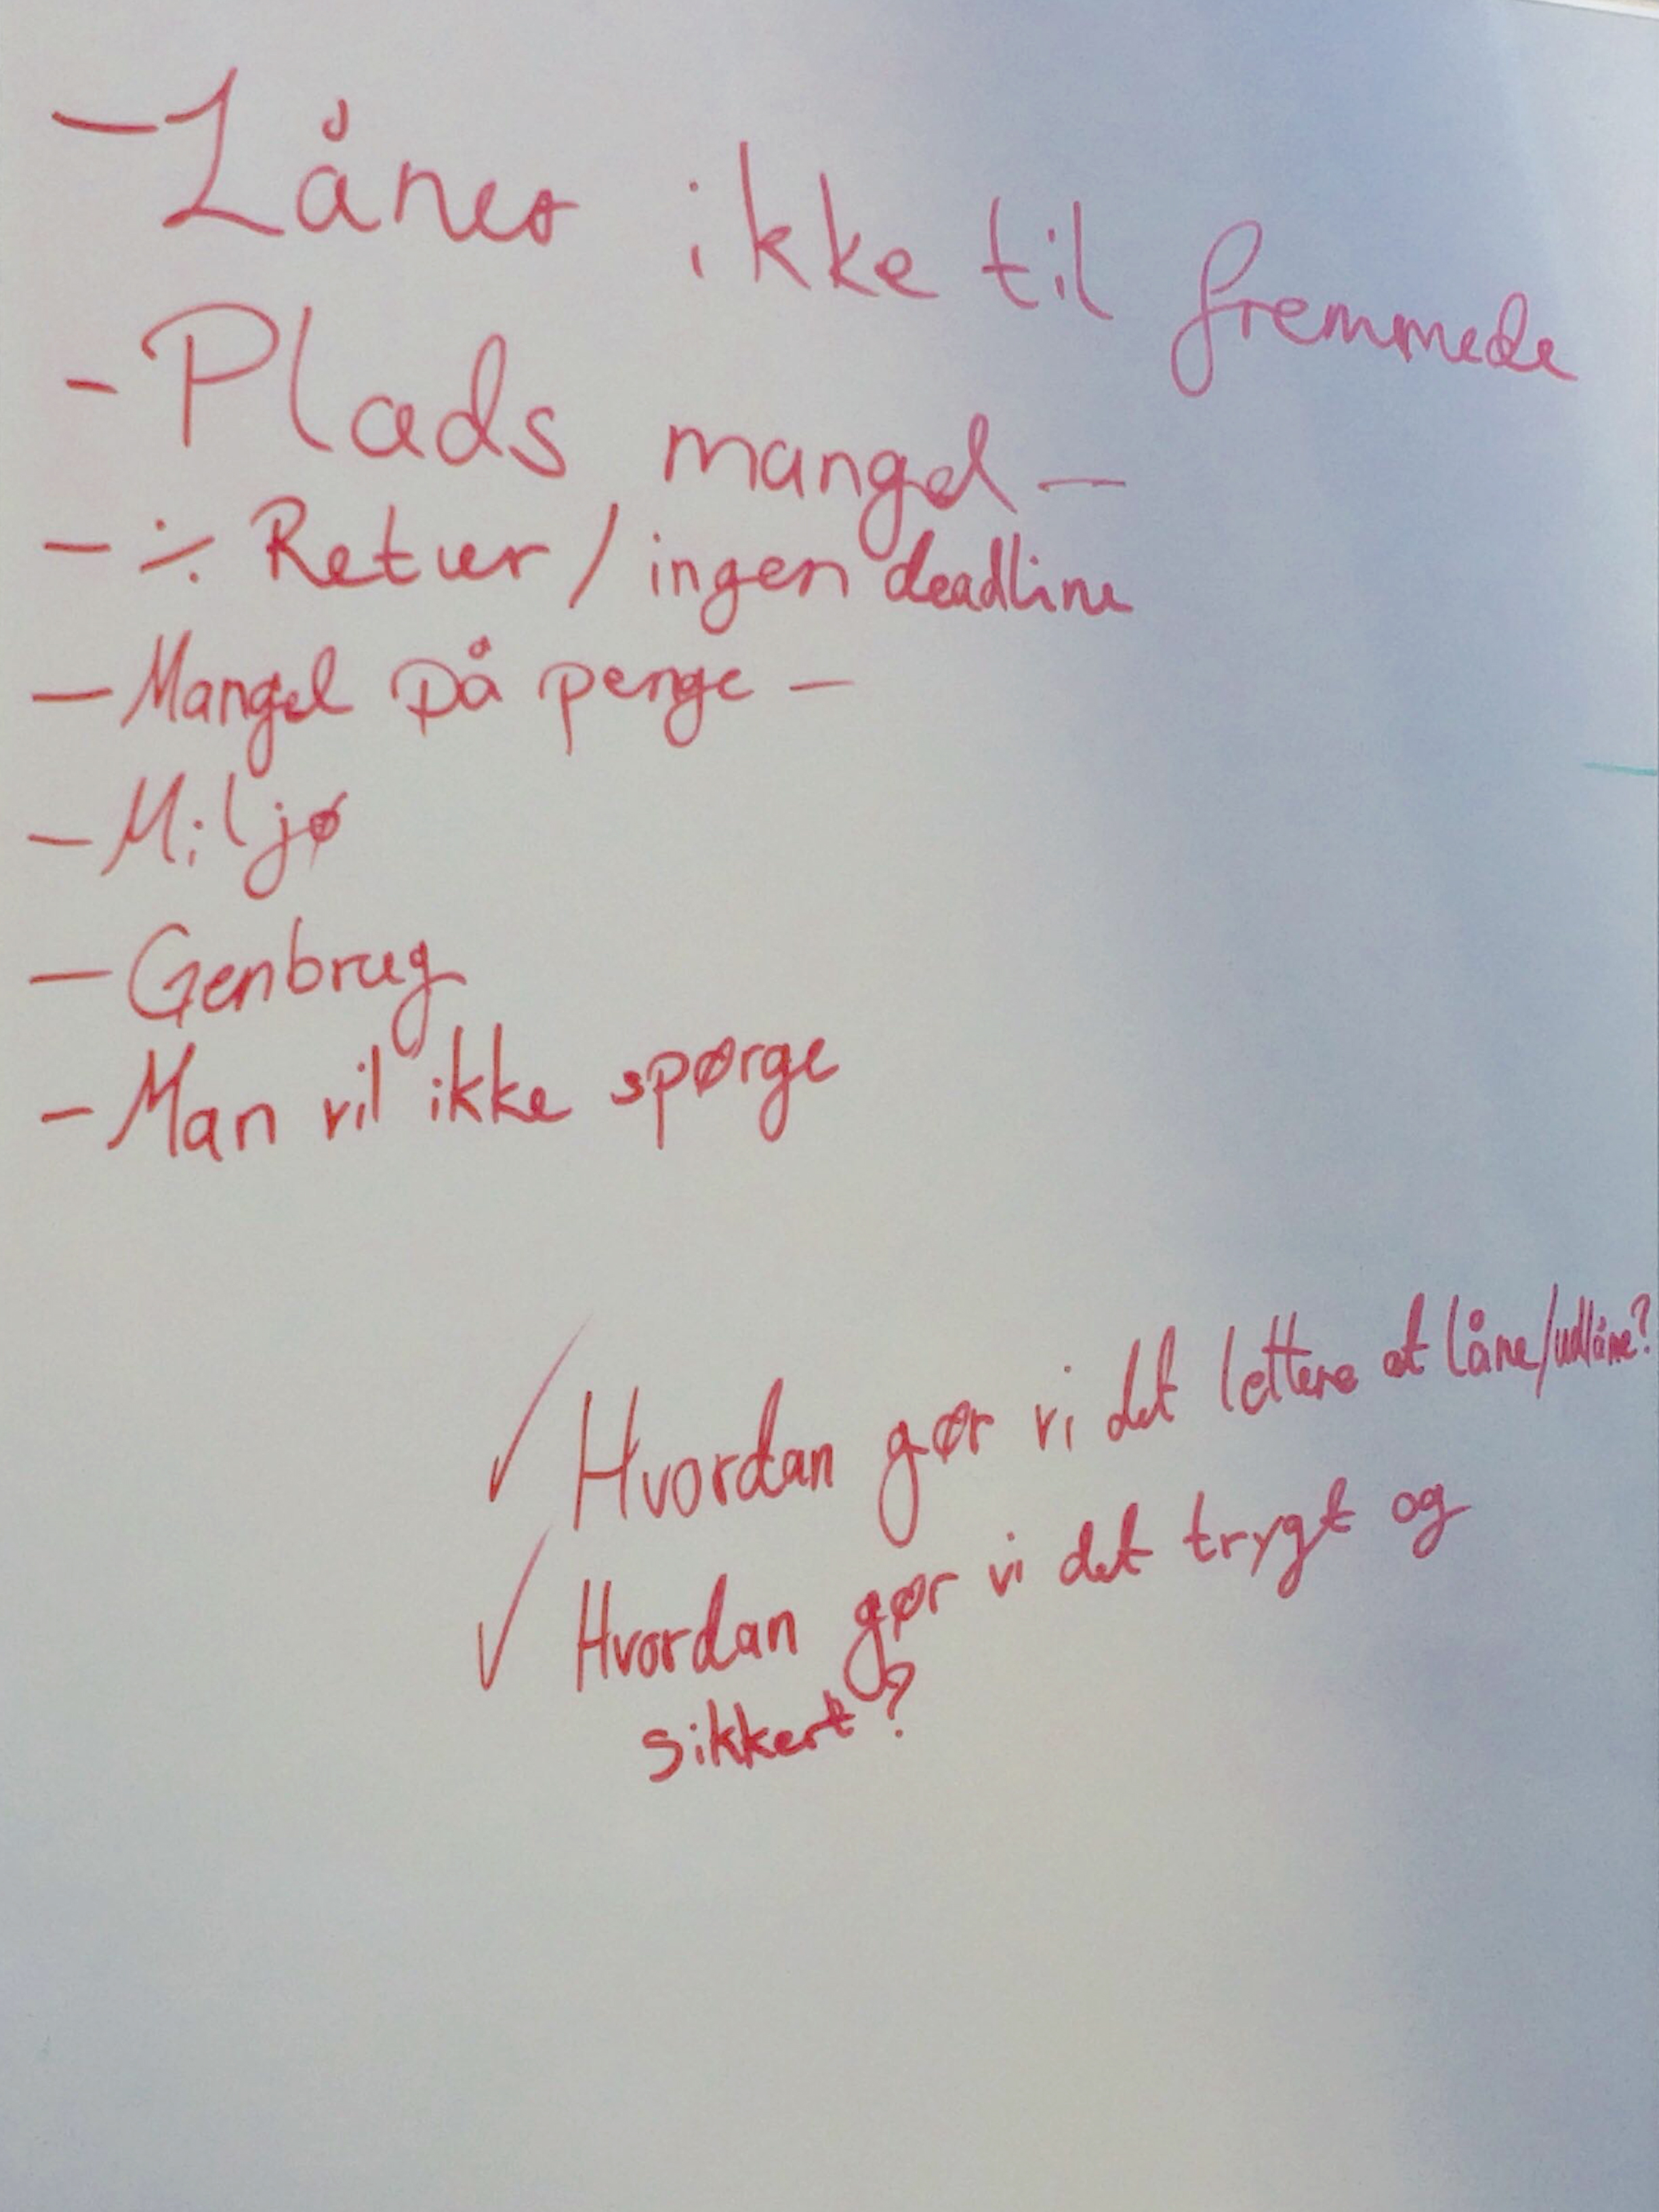 - Låner ikke til fremmede
- Plads mangel -
- ÷ Retur / ingen deadline
- Mangel på penge -
- Miljø
- Genbrug
- Man vil ikke spørge
✓ Hvordan gør vi det lettere at låne/udlåne?
✓ Hvordan gør vi det trygt og
sikkert?